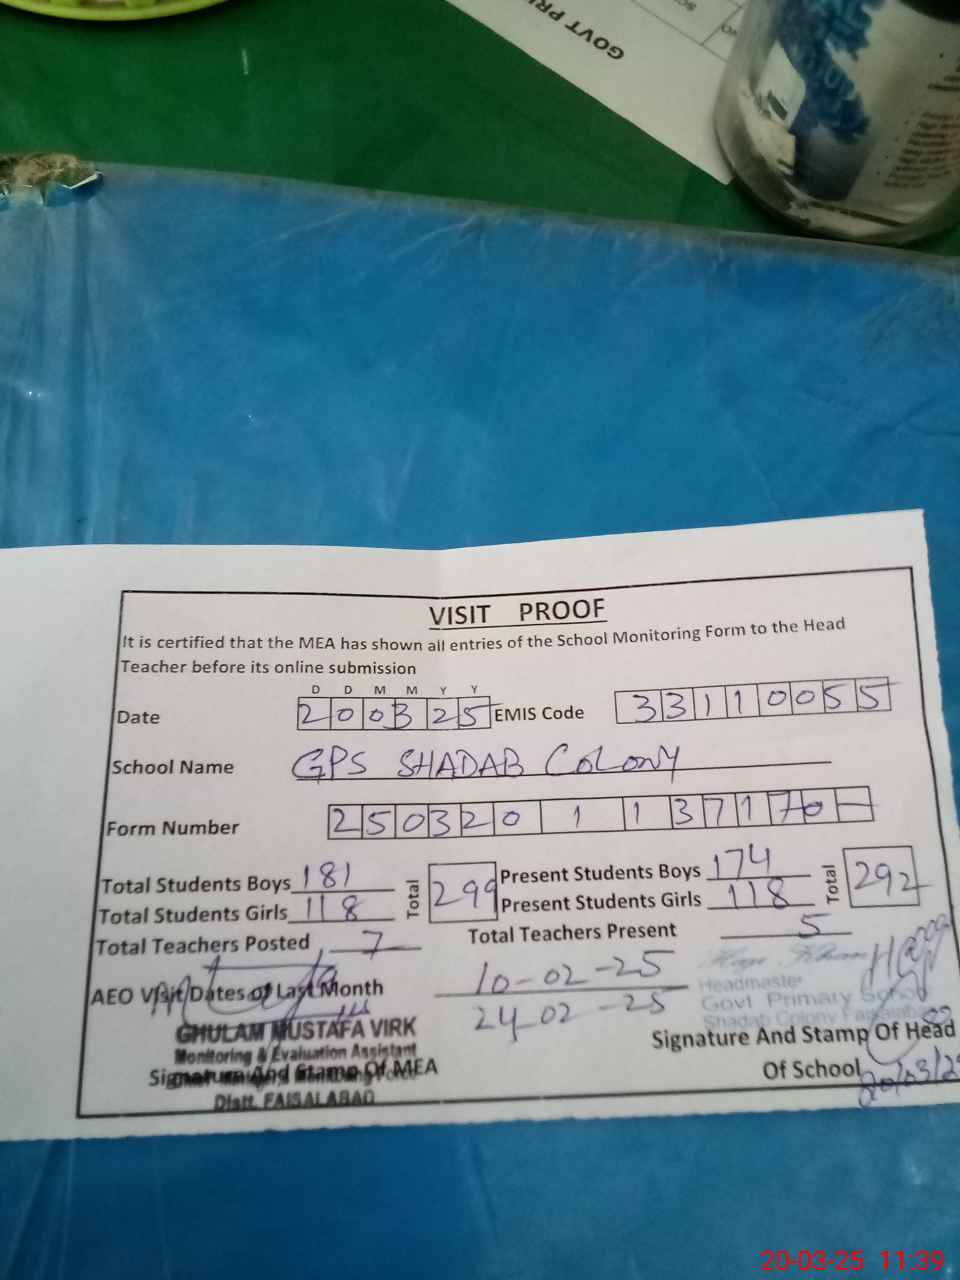 GOVT PRI
VISIT PROOF
It is certified that the MEA has shown all entries of the School Monitoring Form to the Head
Teacher before its online submission
D D M M Y Y
Date 200325 EMIS Code 33110055
School Name GPS SHADAB COLONY
Form Number 250320 1 1 37170-
Total Students Boys 181 Total 299 Present Students Boys 174 Total 292
Total Students Girls 118 Present Students Girls 118
Total Teachers Posted 7 Total Teachers Present 5
AEO Visit Dates of Last Month 10-02-25
24-02-25
Headmaster
Govt Primary School
Shadab Colony Faisalabad
GHULAM MUSTAFA VIRK
Monitoring & Evaluation Assistant
Signature And Stamp Of MEA
Distt. FAISALABAD
Signature And Stamp Of Head
Of School
20/03/25
20-03-25 11:39